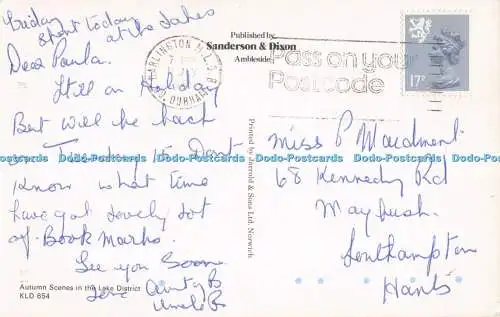 Friday
spent today
at the Lakes
Dear Paula.
Still on Holiday
But will be back
on Tuesday 15 Dont
Know what time
have got lovely lot
of Book Marks.
See you Soon
Love Aunty B
Uncle B
Published by
Sanderson & Dixon
Ambleside
DARLINGTON
DURHAM
Pass on your
Postcode
17P
Printed by Jarrold & Sons Ltd, Norwich
Miss P Maidment
68 Kennedy Rd
Maybush.
Southampton
Hants
Autumn Scenes in the Lake District
KLD 654
Dodo-Postcards Dodo-Postcards Dodo-Postcards Dodo-Postcards Dodo-Postcards